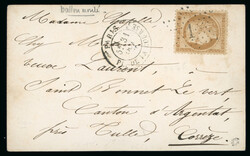 Ballon monté
Madame
Chez M
veuve Laurent,
Saint Bonnet le vert
Canton d'Argentat,
près Tulle.
Corrèze
PARIS